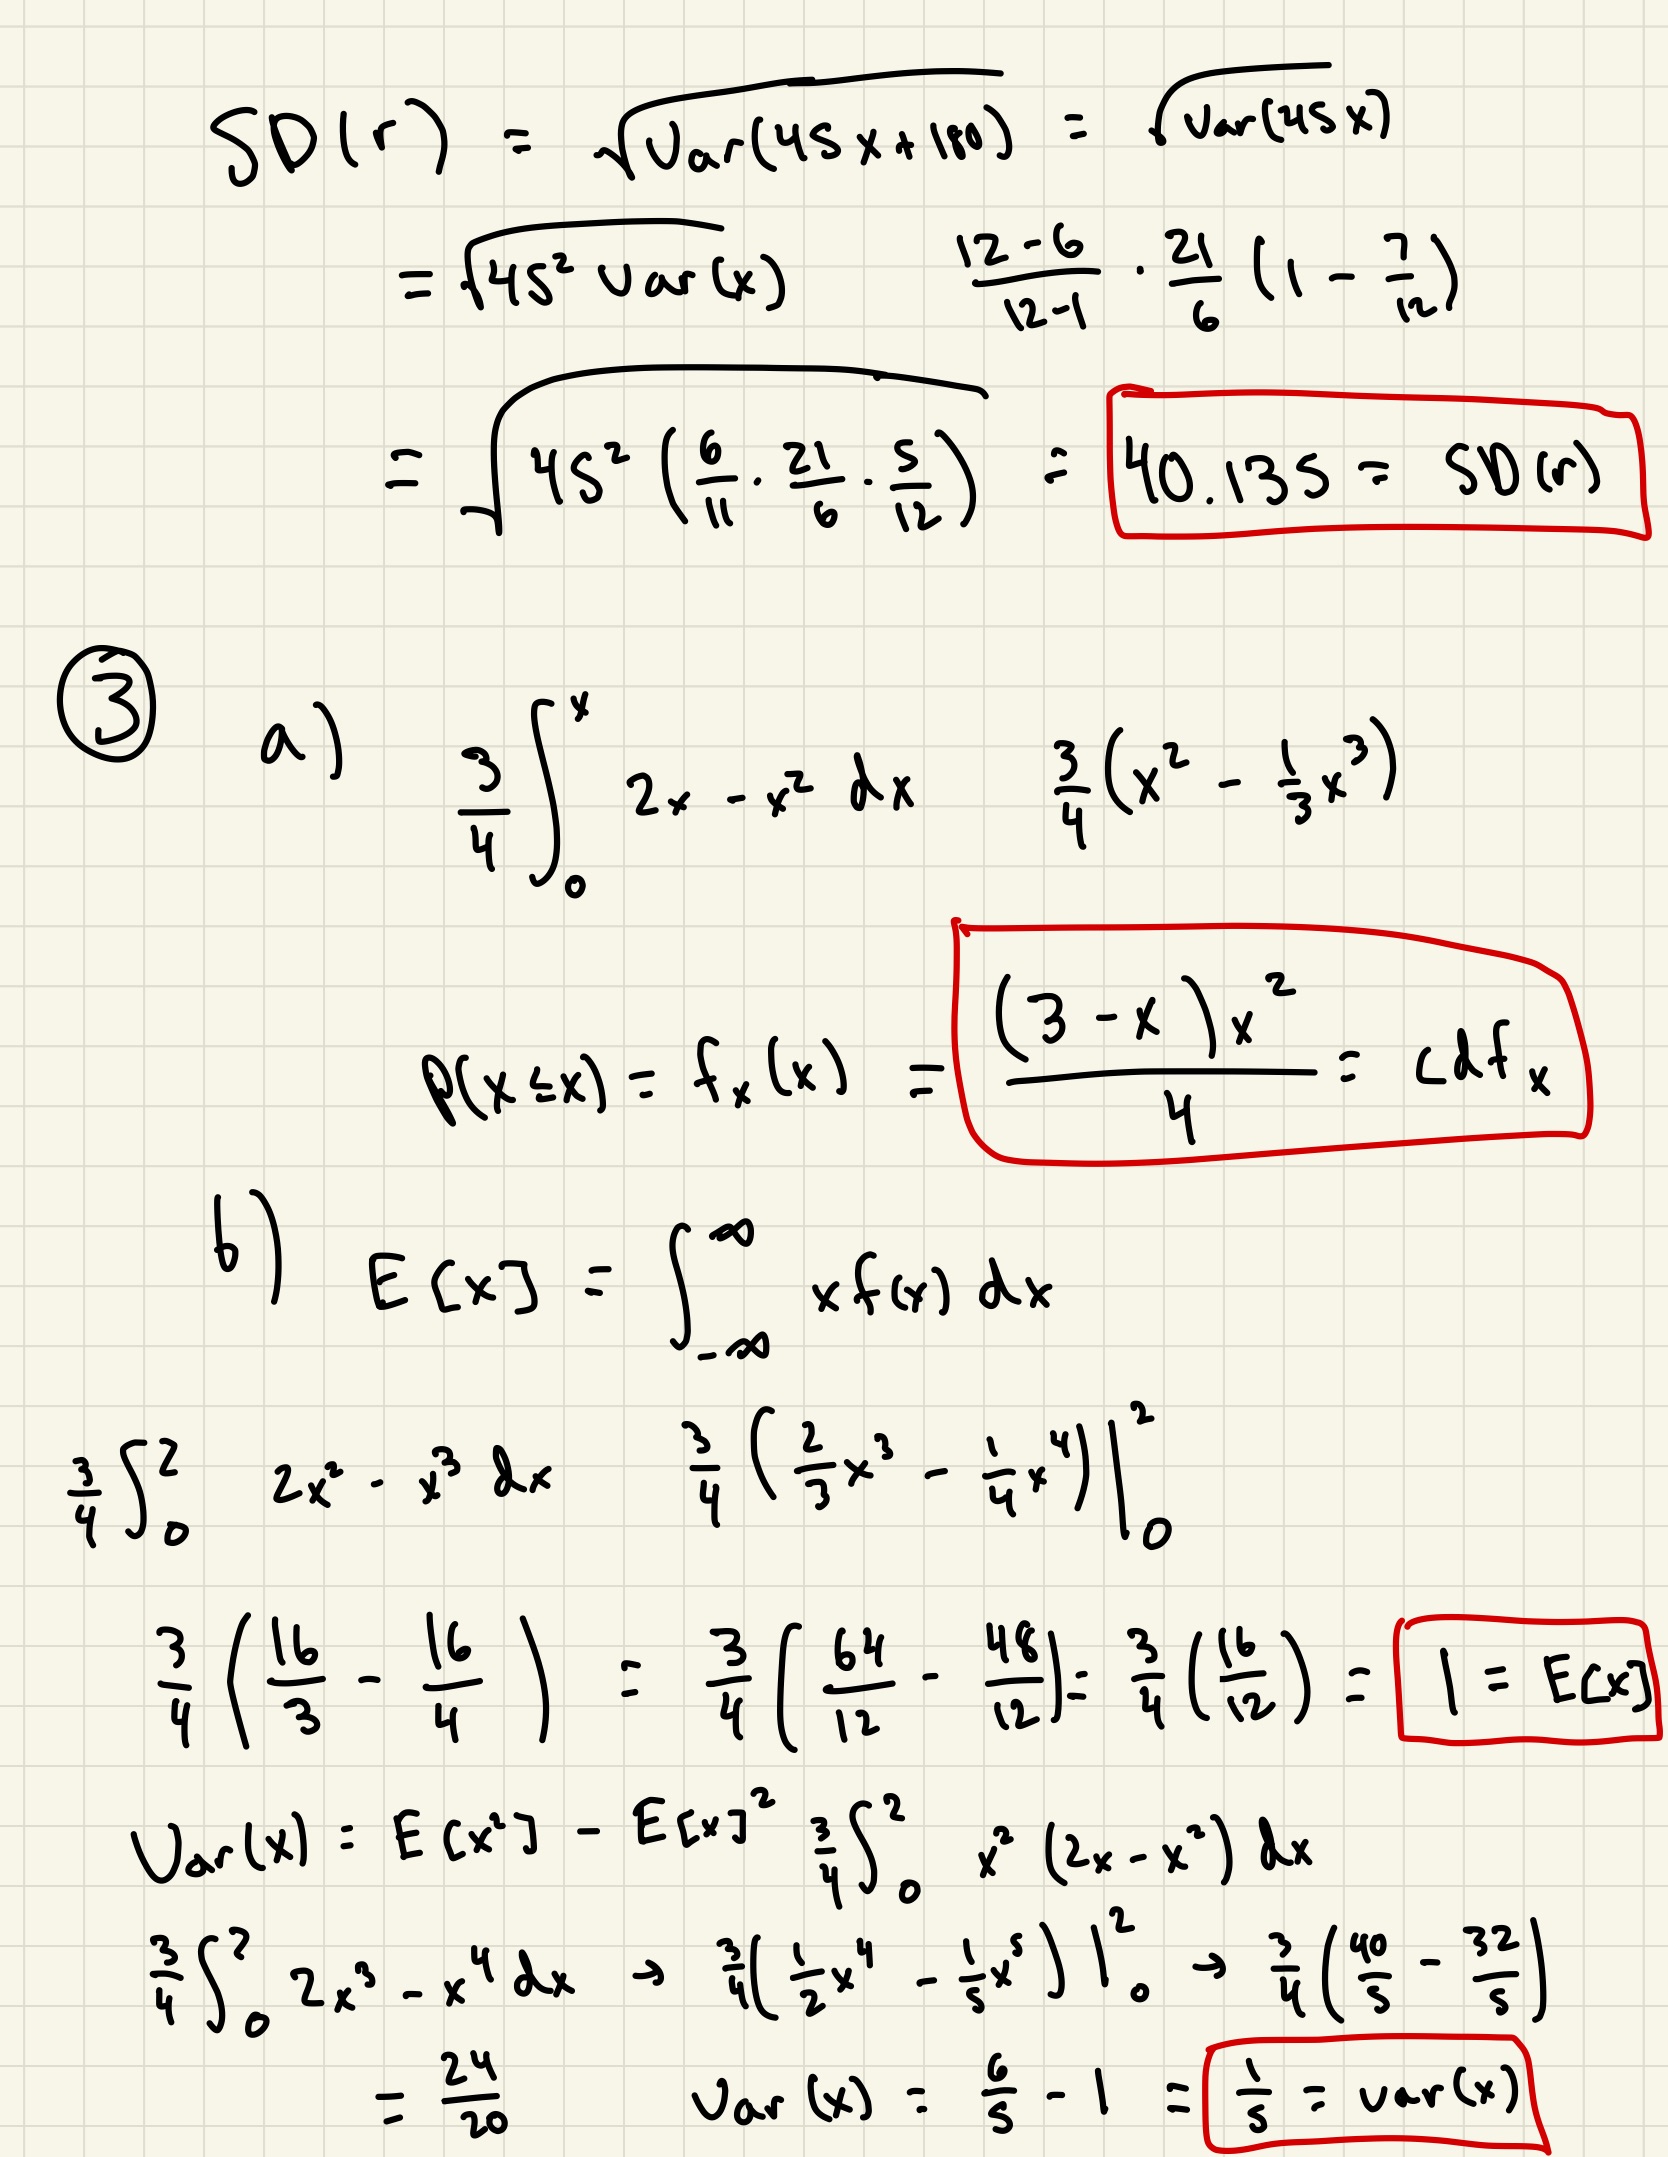 SD(r) = √Var(45x+180) = √Var(45x)
= √45² Var(x) 12-6/12-1 · 21/6 (1 - 7/12)
= √45² (6/11 · 21/6 · 5/12) = 40.135 = SD(r)
③ a) 3/4 ∫₀ˣ 2x - x² dx 3/4(x² - 1/3x³)
P(x≤x) = fₓ(x) = (3-x)x²/4 = cdfₓ
b) E[x] = ∫_-∞^∞ x f(x) dx
3/4 ∫₀² 2x² - x³ dx 3/4 (2/3x³ - 1/4x⁴)|₀²
3/4 (16/3 - 16/4) = 3/4 (64/12 - 48/12) = 3/4 (16/12) = 1 = E[x]
Var(x) = E[x²] - E[x]² 3/4 ∫₀² x² (2x - x²) dx
3/4 ∫₀² 2x³ - x⁴ dx → 3/4(1/2x⁴ - 1/5x⁵)|₀² → 3/4(40/5 - 32/5)
= 24/20 Var(x) = 6/5 - 1 = 1/5 = Var(x)